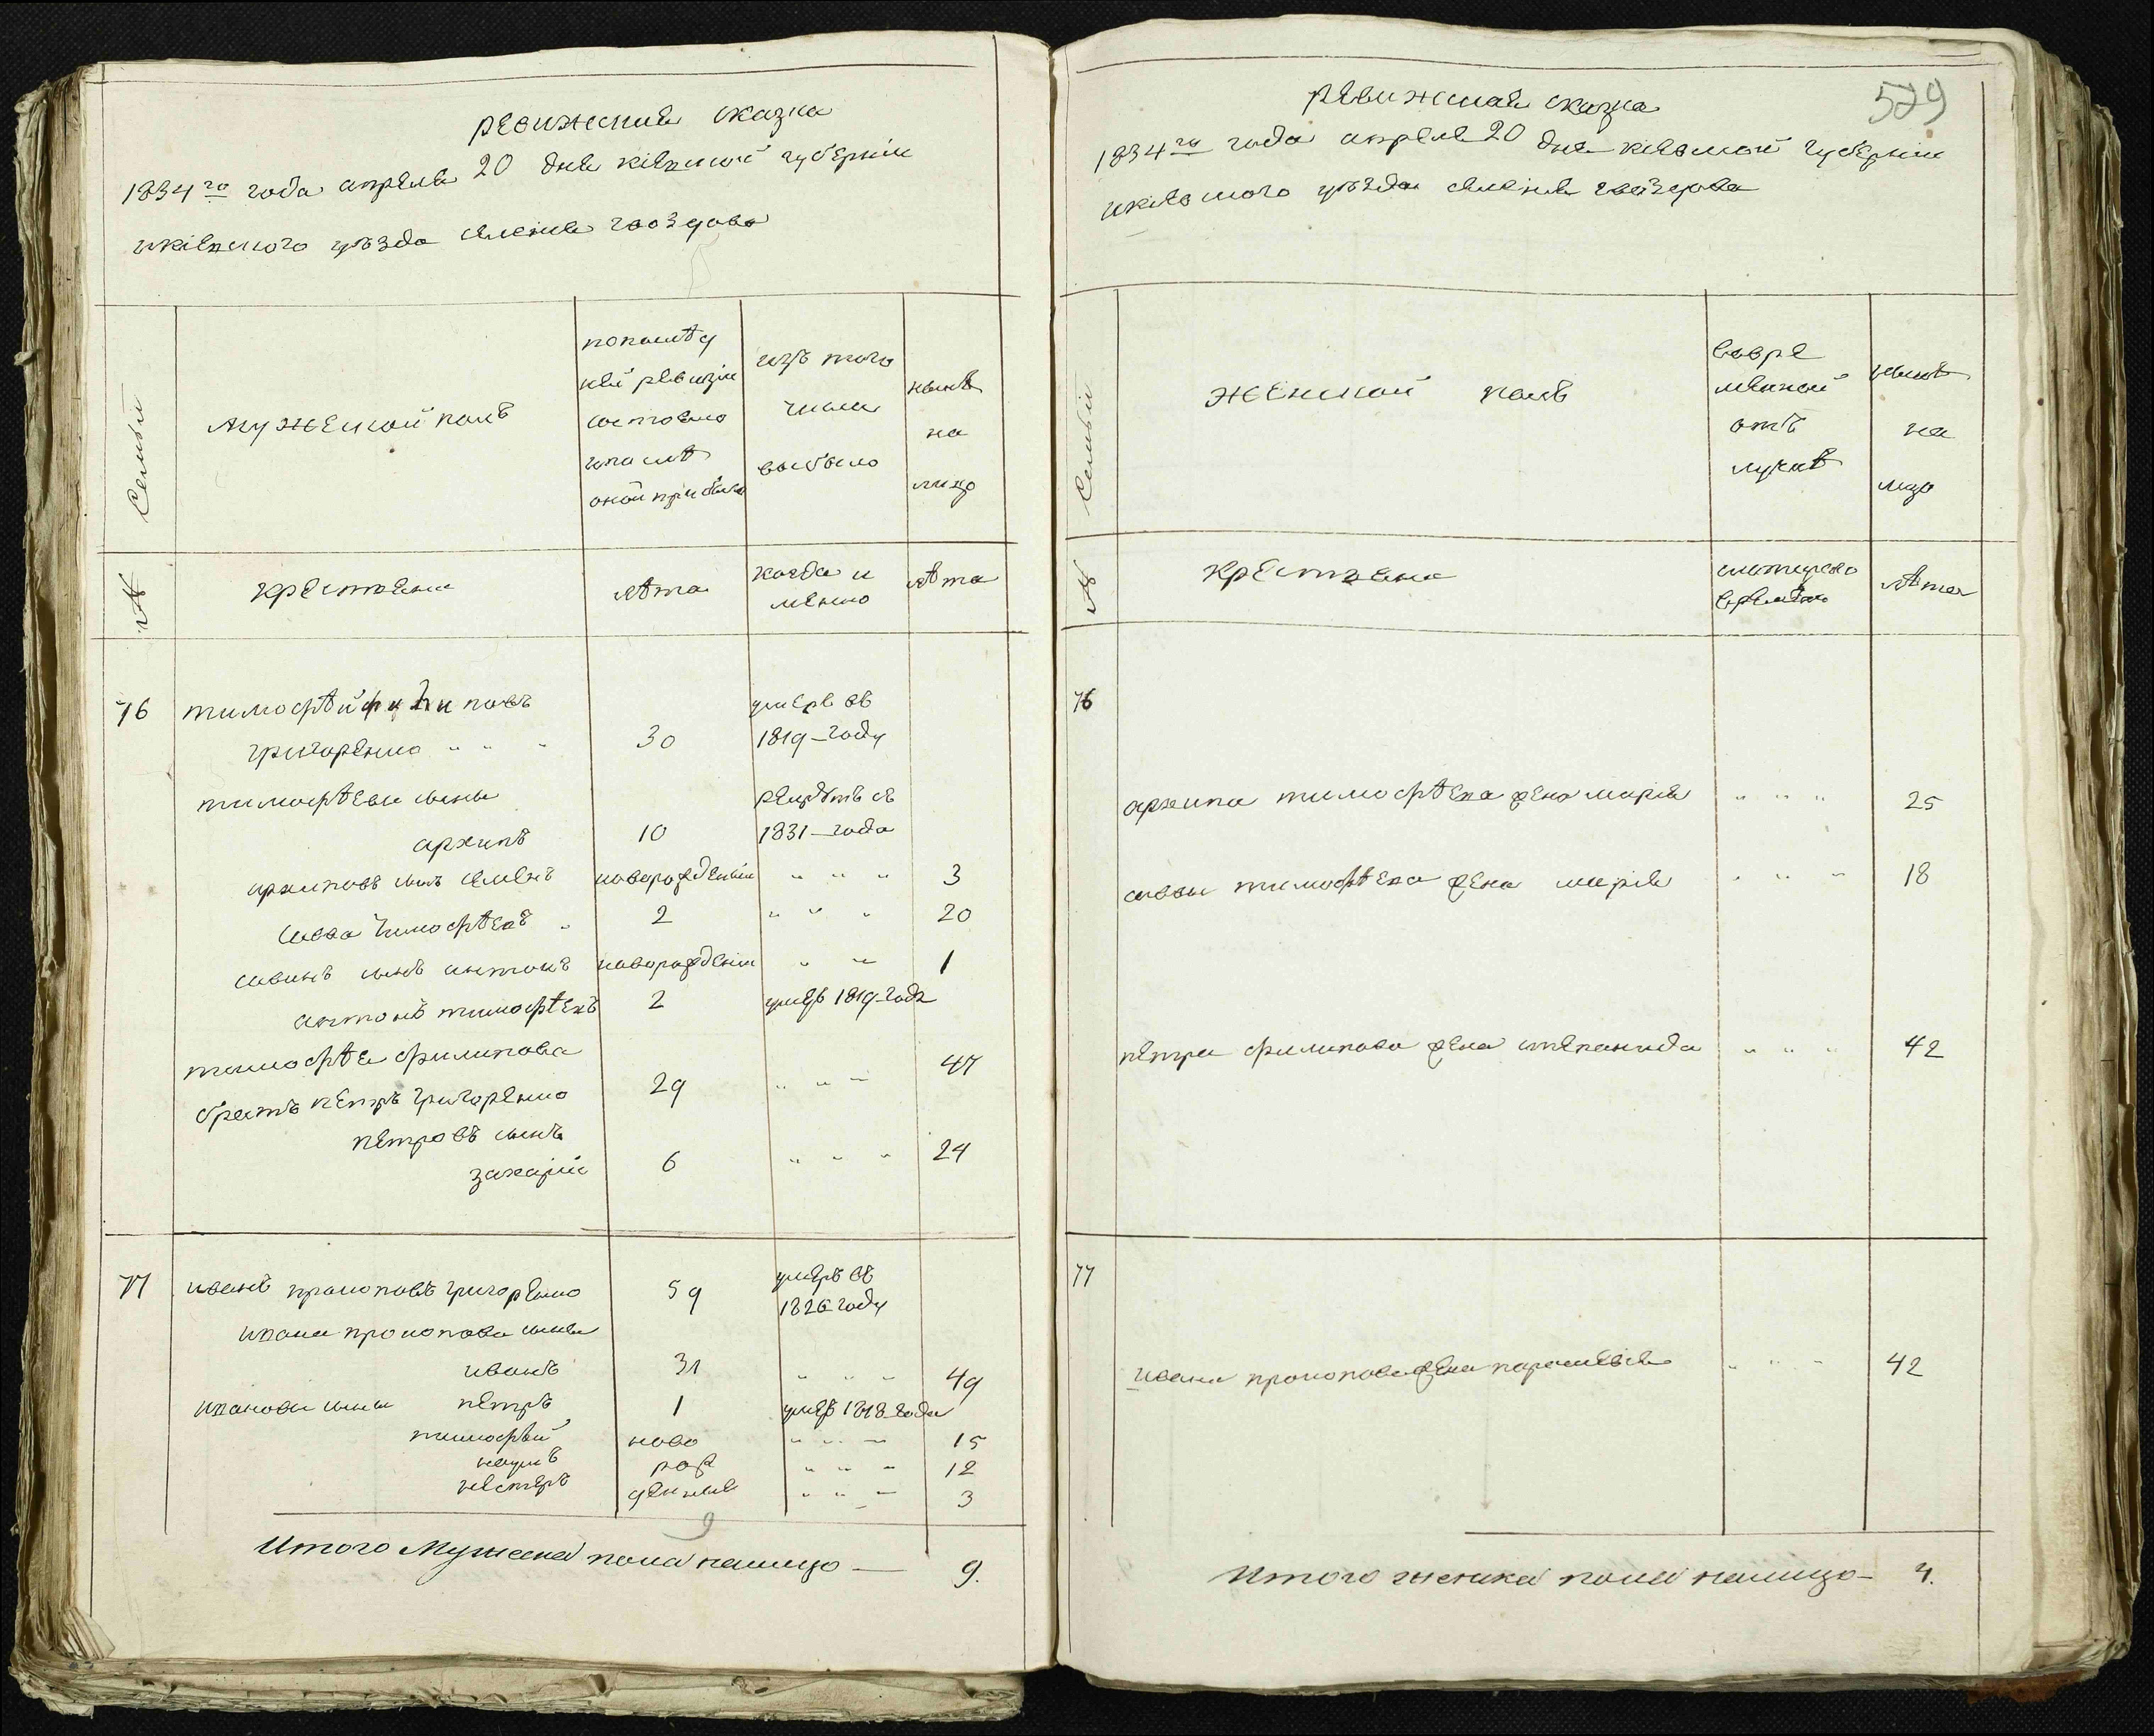 ревижская сказка
1834го года апреля 20 дня кіевской губерніи
икіевского уѣзда селенія гвоздова
Семьи
мужеской полъ
попослѣд
ней ревизіи
состояло
ипослѣ
оной прибыло
изъ того
числа
выбыло
нынѣ
на
лицо
№
крестьяне
лѣта
когда и
менно
лѣта
76
тимофѣй филиповъ
умерв въ
григоренко " " "
30
1819-году
тимофѣевы сыны
рекрутъ съ
архипъ
10
1831-года
архиповъ сынъ семенъ
новорожденни
" " "
3
савва тимофѣевъ "
2
" " "
20
савинъ сынъ антонъ
новорожденни
" "
1
антонъ тимофѣевъ
2
умеръ 1819-года
тимофѣя филипова
47
братъ петръ григоренко
29
" " "
петровъ сынъ
24
захарій
6
" " "
77
иванъ прокоповъ григоренко
59
умеръ въ
1826-году
ивана прокопова сыны
иванъ
31
" " "
49
ивановы сыны петръ
1
умеръ 1818-года
тимофѣй
ново
" " "
15
наумъ
рож
" " "
12
нестеръ
денные
" " "
3
9
Итого Мужеска пола налицо —
9.
529
ревижская сказка
1834го года апреля 20 дня кіевской губерніи
икіевского уѣзда селенія гвоздова
Семьи
женской полъ
вовре
менной
отъ
лучкѣ
нынѣ
на
лицо
№
крестьяне
лѣта
76
архипа тимофѣева жена марія
" " "
25
саввы тимофѣева жена марія
" " "
18
петра филипова жена степанида
" " "
42
77
ивана прокопова жена параскевія
" " "
42
Итого женска пола налицо —
4.